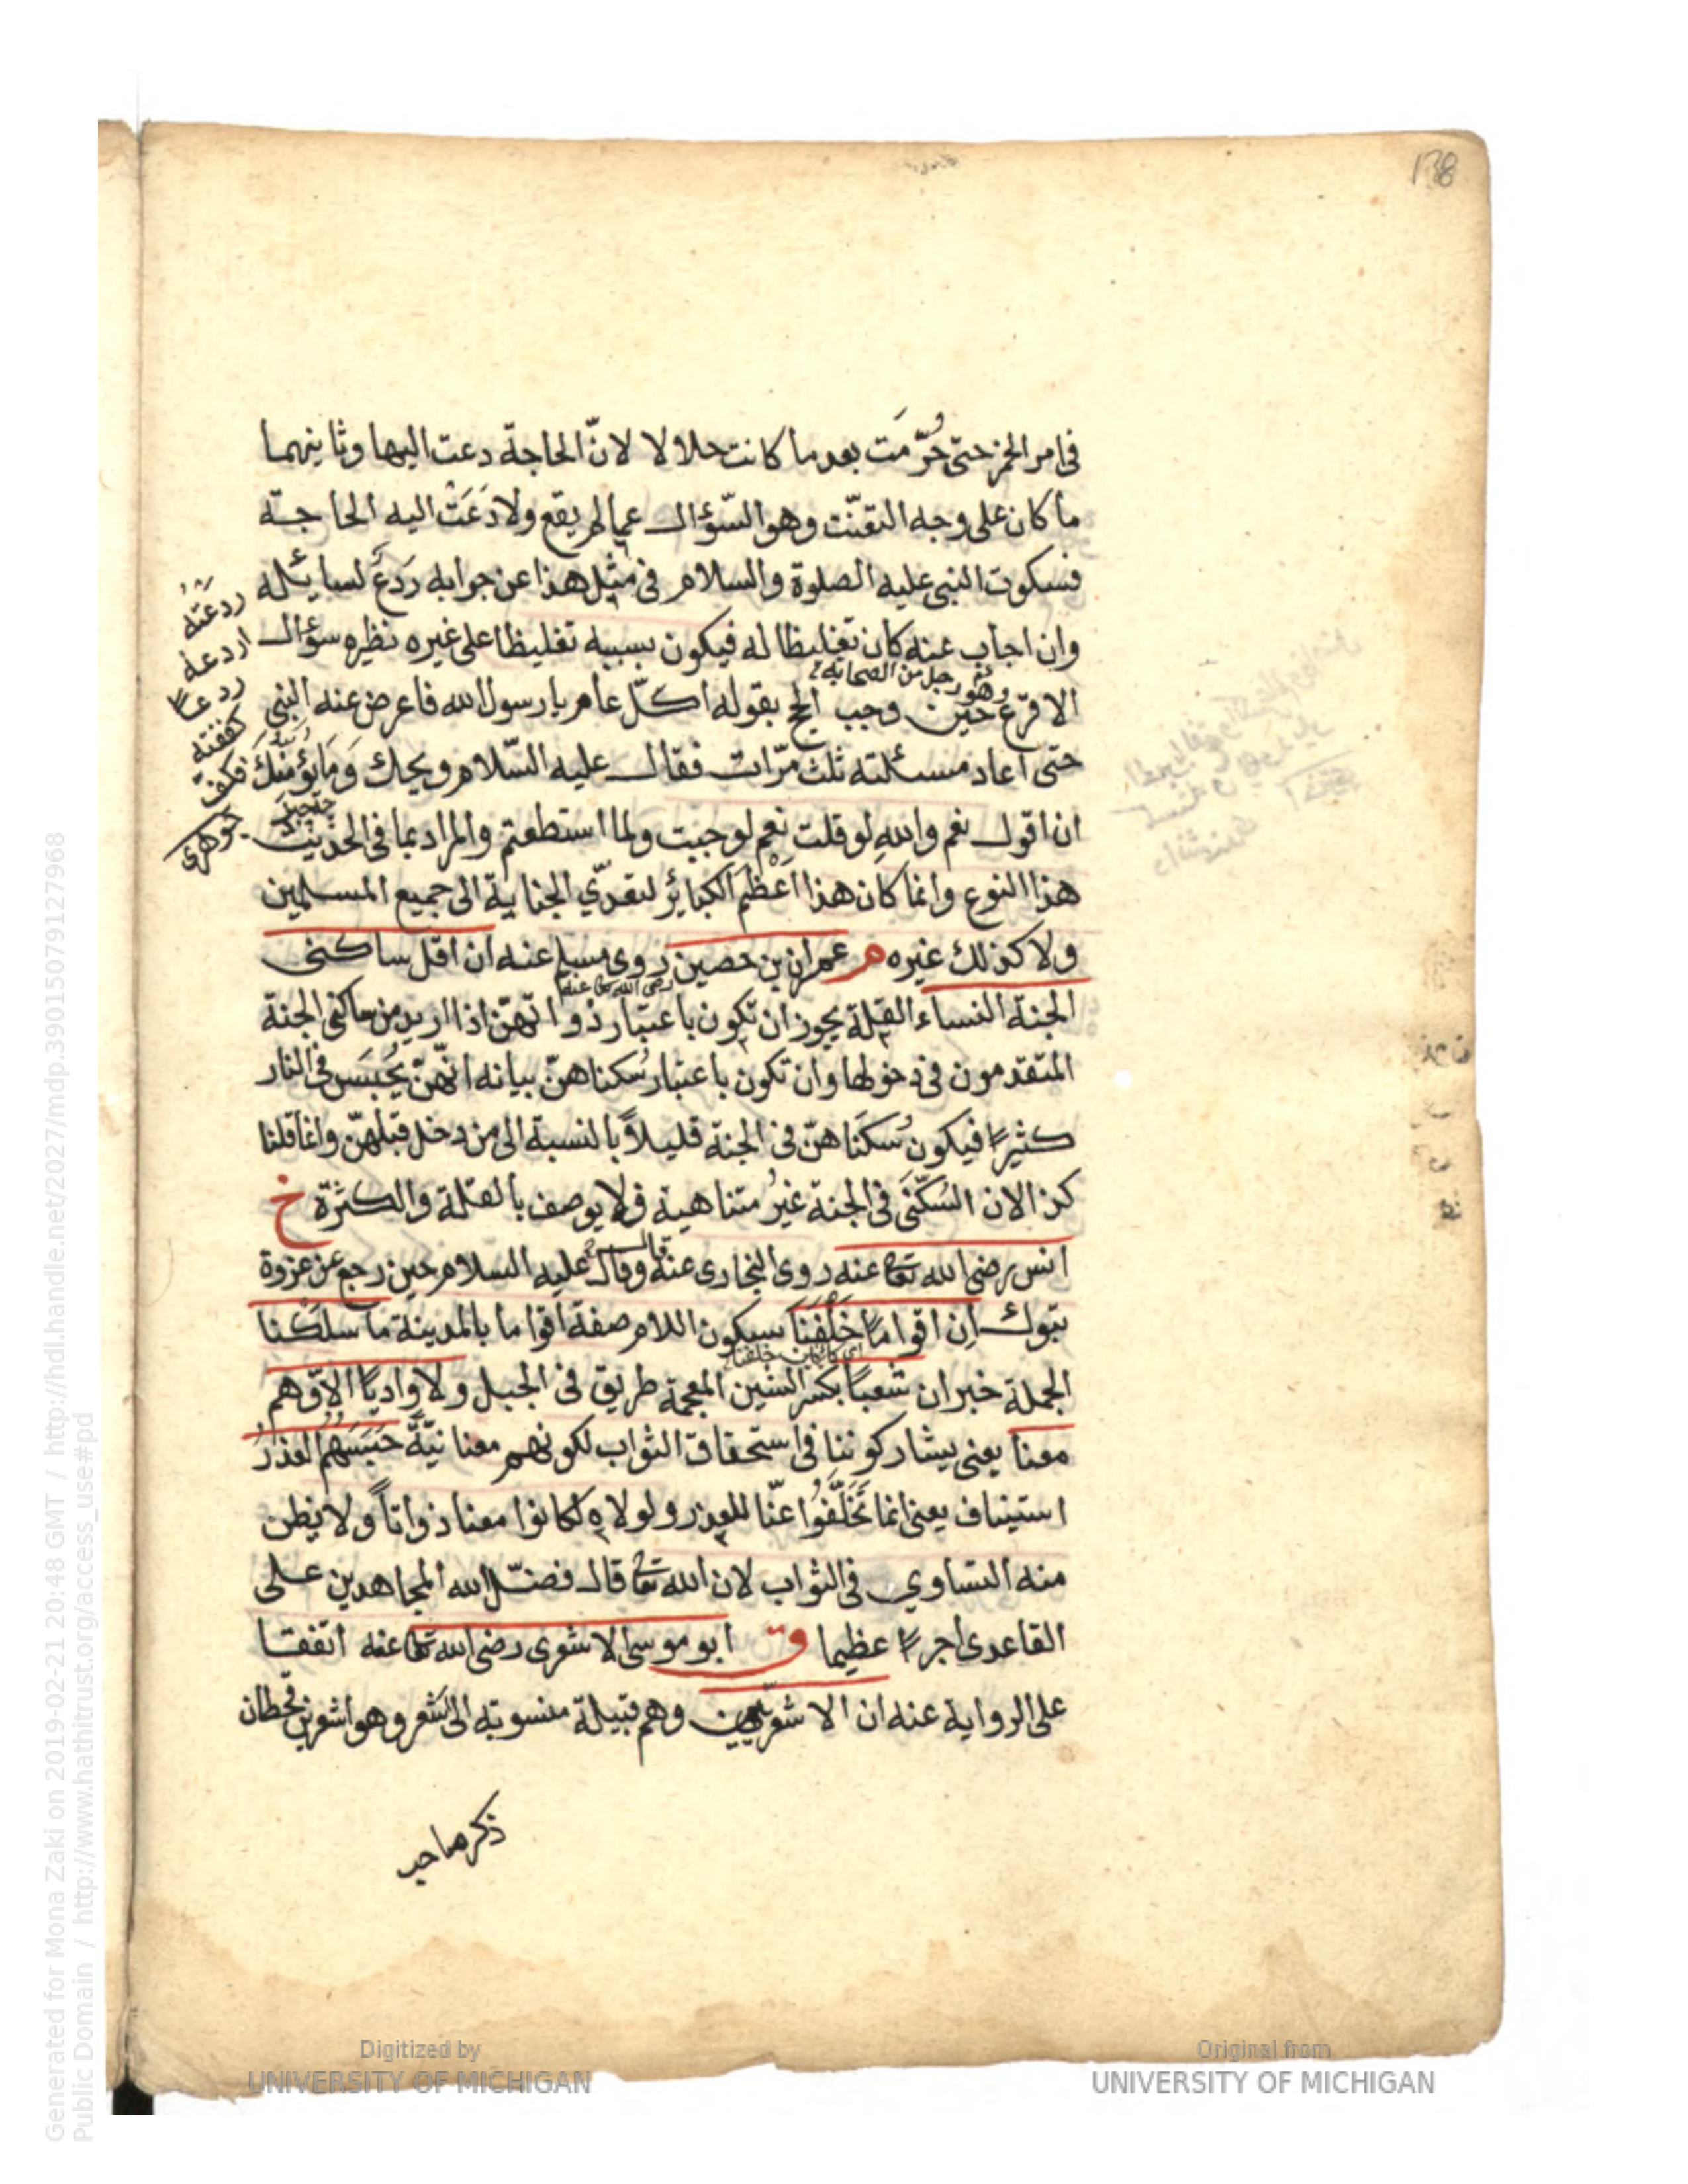 138
فى امر الخمر حتى حُرِّمَت بعد ما كانت حلالا لا لانّ الحاجة دعت اليها وثانيهما
ما كان على وجه التعنّت وهو السّؤال عما لم يقع ولا دَعَتْ اليه الحاجة
فسكوت النبى عليه الصلوة والسلام فى مثل هذا عن جوابه رَدعٌ لسايئله
وان اجاب عنه كان تغليظا له فيكون بسببه تغليظا على غيره نظيره سؤال
وهو رجل من الصحابة
الاقرع حين وجب الحج بقوله اكلّ عام يا رسول الله فاعرض عنه النبى
حتى اعاد مسئلته ثلث مرّات فقال عليه السّلام ويحك وَمَا يُؤمِنُكَ
ان اقول نعم والله لو قلت نعم لوجبت ولما استطعتم والمراد بما فى الحديث
هذا النوع وانما كان هذا اَعْظَم الكبائر لتعدّي الجناية الى جميع المسلمين
ولا كذلك غيره م عمران بن حصين روى مسلم عنه ان اقل ساكنى
رضى الله تعا عنه
الجنة النساء القلة يجوز ان تكون باعتبار ذواتهنّ اذا اريد من ساكنى الجنة
المتقدمون فى دخولها وان تكون باعتبار سُكناهنّ بيانه انّهنّ يُحبَسن فى النار
كثيرًا فيكون سُكنَاهنّ فى الجنة قليلاً بالنسبة الى من دخل قبلهنّ وانما قلنا
كذا لان السُكنَى فى الجنة غيرُ متناهية فلا يوصف بالقلة والكثرة خ
انس رضى الله تعا عنه روى البخارى عنه وقال قال عليه السلام حين رجع عن غزوة
تبوك اِن اقوامًا خَلْفَنَا بسكون اللام صفة اقواما بالمدينة ما سلكنا
اى كائنات خلفنا
الجملة خبر ان شعبًا بكسر الشين المعجمة طريق فى الجبل ولا واديًا الا وهم
معنا يعنى يشاركوننا فى استحقاق الثواب لكونهم معنا نيّةً حَبَسَهُمُ العُذرُ
استيناف يعنى انما تَخَلَّفُوا عنّا للعذر ولولاه لكانوا معنا ذواتاً ولا يظن
منه التساوي فى الثواب لان الله تعا قال فضّل الله المجاهدين على
القاعدى اجرًا عظيما ق ابو موسى الاشعرى رضى الله تعا عنه اتفقا
على الرواية عنه ان الاشعريّين وهم قبيلة منسوبة الى اشعر وهو اشعر بن قحطان
ذكر صاحب
ردعتهُ
اردعهُ
ردعاً
كففته
فكفّ
جوهرى
Generated for Mona Zaki on 2019-02-21 20:48 GMT / http://hdl.handle.net/2027/mdp.39015079127968
Public Domain / http://www.hathitrust.org/access_use#pd
Digitized by
UNIVERSITY OF MICHIGAN
Original from
UNIVERSITY OF MICHIGAN